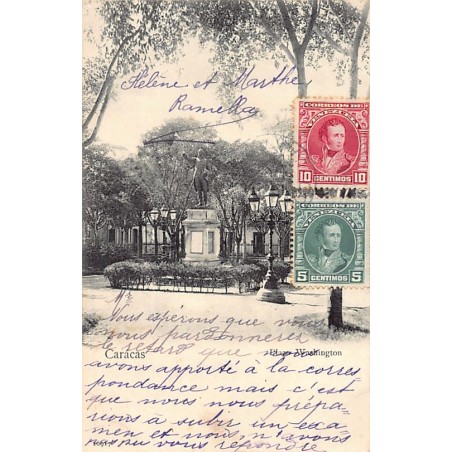 Hélène et Marthe
Ramella
CORREOS DE
VENEZUELA
10 10
CENTIMOS
CORREOS DE
VENEZUELA
5 5
CENTIMOS
Vous espérons que vous
nous pardonnerez
Caracas Plaza Washington
le retard que nous
avons apporté à la corres
pondance mais c'est
que nous nous prépa-
rions à subir un exa
men et nous n'avons
pu vous répondre